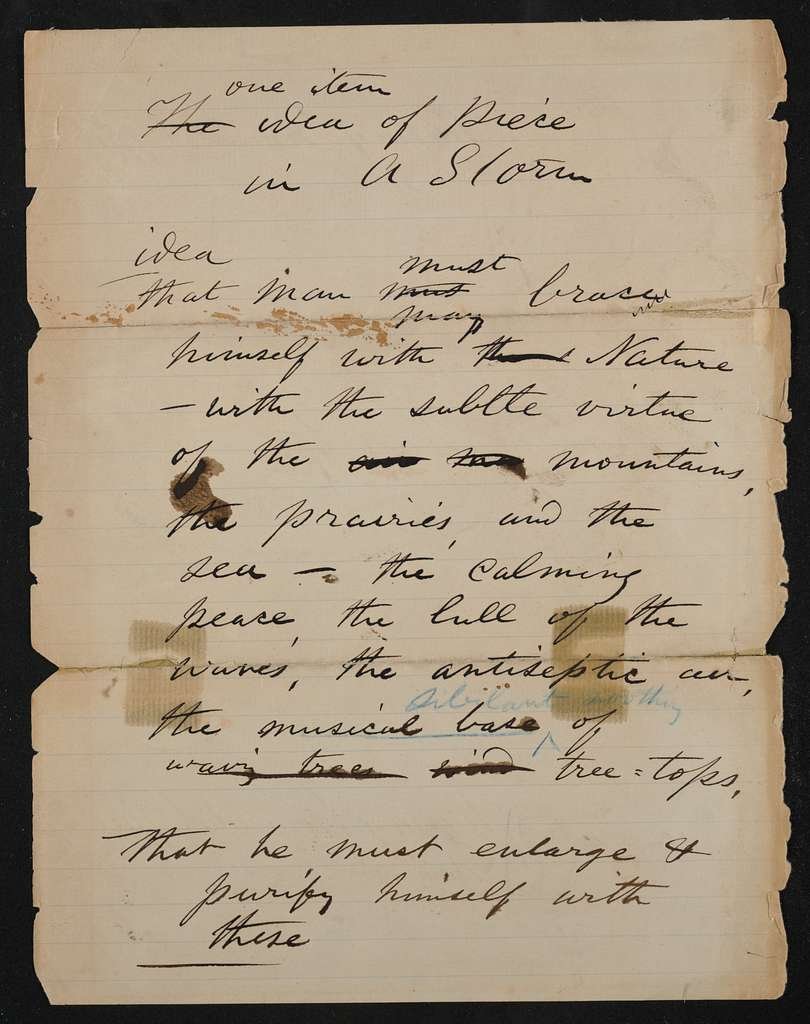 one item
The idea of piece
in A Storm
idea
must
that man must brace
may
himself with the Nature
— with the subtle virtue
of the air the mountains,
the prairies, and the
sea — the calming
peace, the lull of the
waves, the antiseptic air,
sibilant
the musical base of
waving trees wind tree=tops,
that he must enlarge &
purify himself with
these